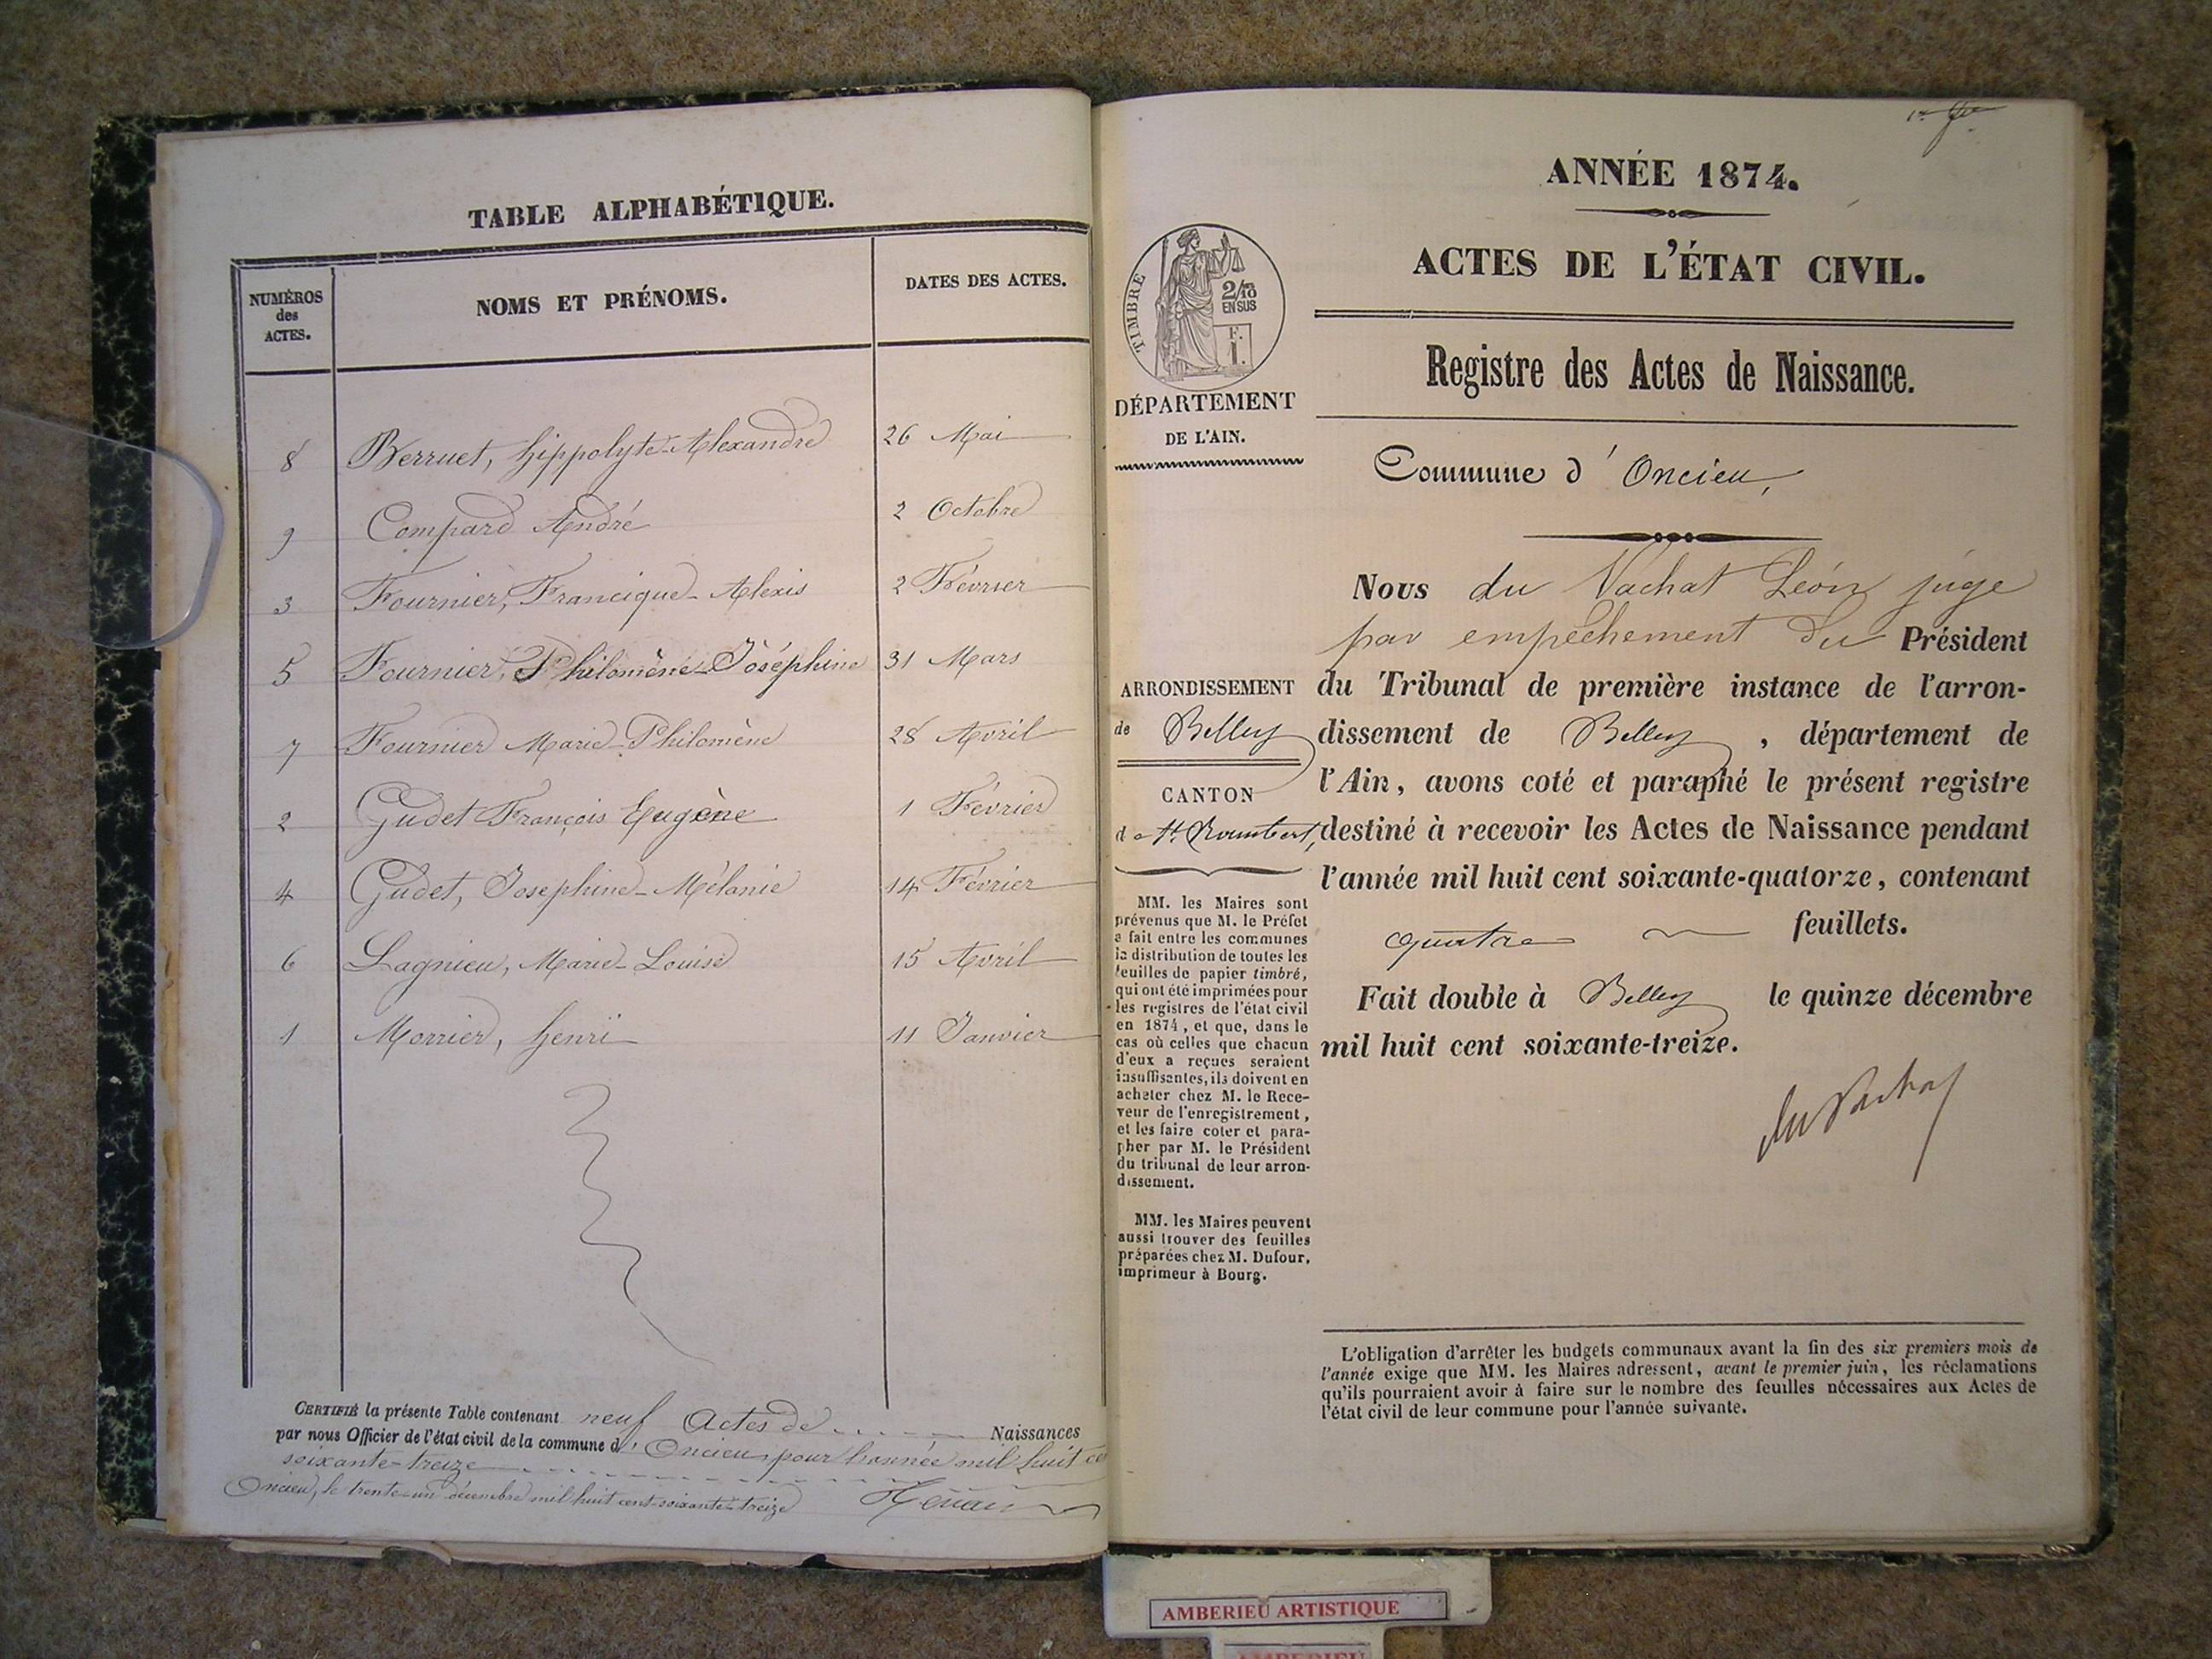 TABLE ALPHABÉTIQUE.
NUMÉROS
des
ACTES.
NOMS ET PRÉNOMS.
DATES DES ACTES.
8 Berruet, hippolyte-Alexandre 26 Mai
9 Compard André 2 Octobre
3 Fournier, Francique-Alexis 2 Février
5 Fournier, Philomène-Joséphine 31 Mars
7 Fournier Marie-Philomène 28 Avril
2 Gudet François Eugène 1 Février
4 Gudet, Josephine-Mélanie 14 Février
6 Lagnieu, Marie-Louise 15 Avril
1 Morrier, henri 11 Janvier
CERTIFIÉ la présente Table contenant neuf Actes de Naissances
par nous Officier de l'état civil de la commune d'Oncieu, pour l'année mil huit ce
soixante-treize
Oncieu, le trente-un décembre mil huit cent soixante-treize
ANNÉE 1874.
ACTES DE L'ÉTAT CIVIL.
Registre des Actes de Naissance.
TIMBRE
2/10
EN SUS
F.
1.
DÉPARTEMENT
DE L'AIN.
Commune d'Oncieu,
Nous du Vachat Léon juge
par empêchement du Président
du Tribunal de première instance de l'arron-
dissement de Belley, département de
l'Ain, avons coté et paraphé le présent registre
destiné à recevoir les Actes de Naissance pendant
l'année mil huit cent soixante-quatorze, contenant
quatre feuillets.
Fait double à Belley le quinze décembre
mil huit cent soixante-treize.
du Vachat
ARRONDISSEMENT
de Belley
CANTON
de St. Rambert,
MM. les Maires sont
prévenus que M. le Préfet
a fait entre les communes
la distribution de toutes les
feuilles de papier timbré,
qui ont été imprimées pour
les registres de l'état civil
en 1874, et que, dans le
cas où celles que chacun
d'eux a reçues seraient
insuffisantes, ils doivent en
acheter chez M. le Rece-
veur de l'enregistrement,
et les faire coter et para-
pher par M. le Président
du tribunal de leur arron-
dissement.
MM. les Maires peuvent
aussi trouver des feuilles
préparées chez M. Dufour,
imprimeur à Bourg.
L'obligation d'arrêter les budgets communaux avant la fin des six premiers mois de
l'année exige que MM. les Maires adressent, avant le premier juin, les réclamations
qu'ils pourraient avoir à faire sur le nombre des feuilles nécessaires aux Actes de
l'état civil de leur commune pour l'année suivante.
AMBERIEU ARTISTIQUE
AMBERIEU